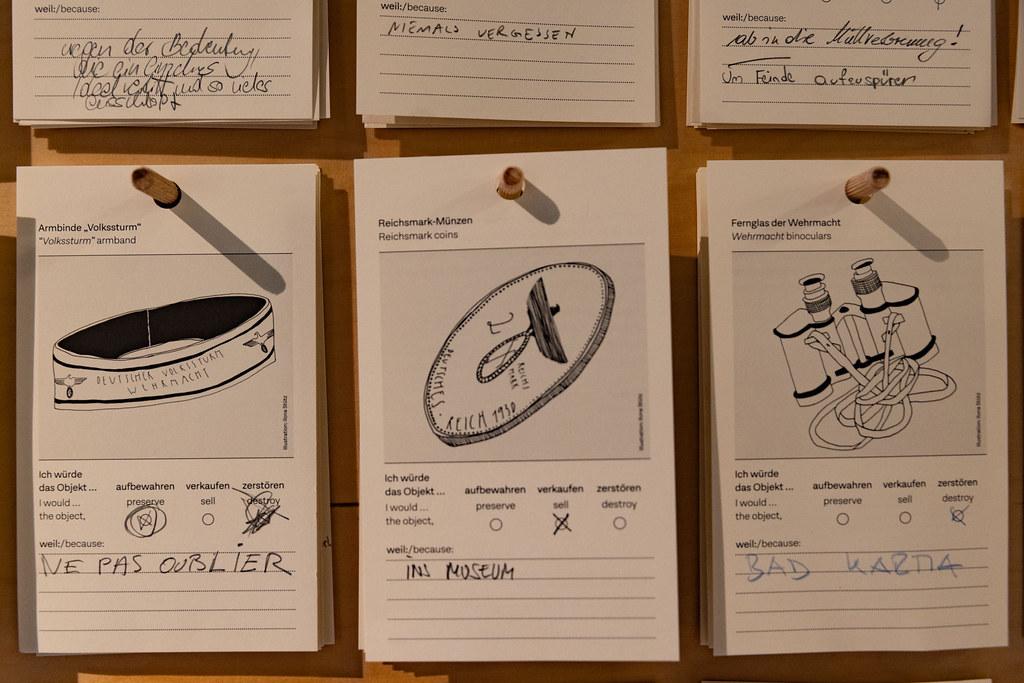 weil:/because:
wegen der Bedeutung
die ein
und so vieles
weil:/because:
NIEMALS VERGESSEN
weil:/because:
ab in die Müllverbrennung!
Um Feinde aufzuspüren
Armbinde „Volkssturm“
“Volkssturm” armband
DEUTSCHER VOLKSSTURM
WEHRMACHT
Illustration: Ilona Stütz
Ich würde
das Objekt ... aufbewahren verkaufen zerstören
I would ... preserve sell destroy
the object,
weil:/because:
NE PAS OUBLIER
Reichsmark-Münzen
Reichsmark coins
2
REICHS
MARK
DEUTSCHES REICH 1930
Illustration: Ilona Stütz
Ich würde
das Objekt ... aufbewahren verkaufen zerstören
I would ... preserve sell destroy
the object,
weil:/because:
INS MUSEUM
Fernglas der Wehrmacht
Wehrmacht binoculars
Illustration: Ilona Stütz
Ich würde
das Objekt ... aufbewahren verkaufen zerstören
I would ... preserve sell destroy
the object,
weil:/because:
BAD KARMA